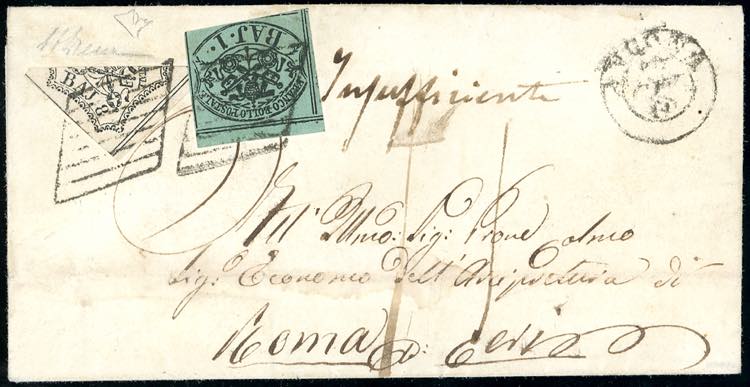 BAJ. 8
BAJ. 1.
FRANCO BOLLO POSTALE
Insufficiente
ANCONA
All' Illmo: Sig: Prone Colmo
Sig: Economo dell' Arcipretura di
Roma p: Ceri